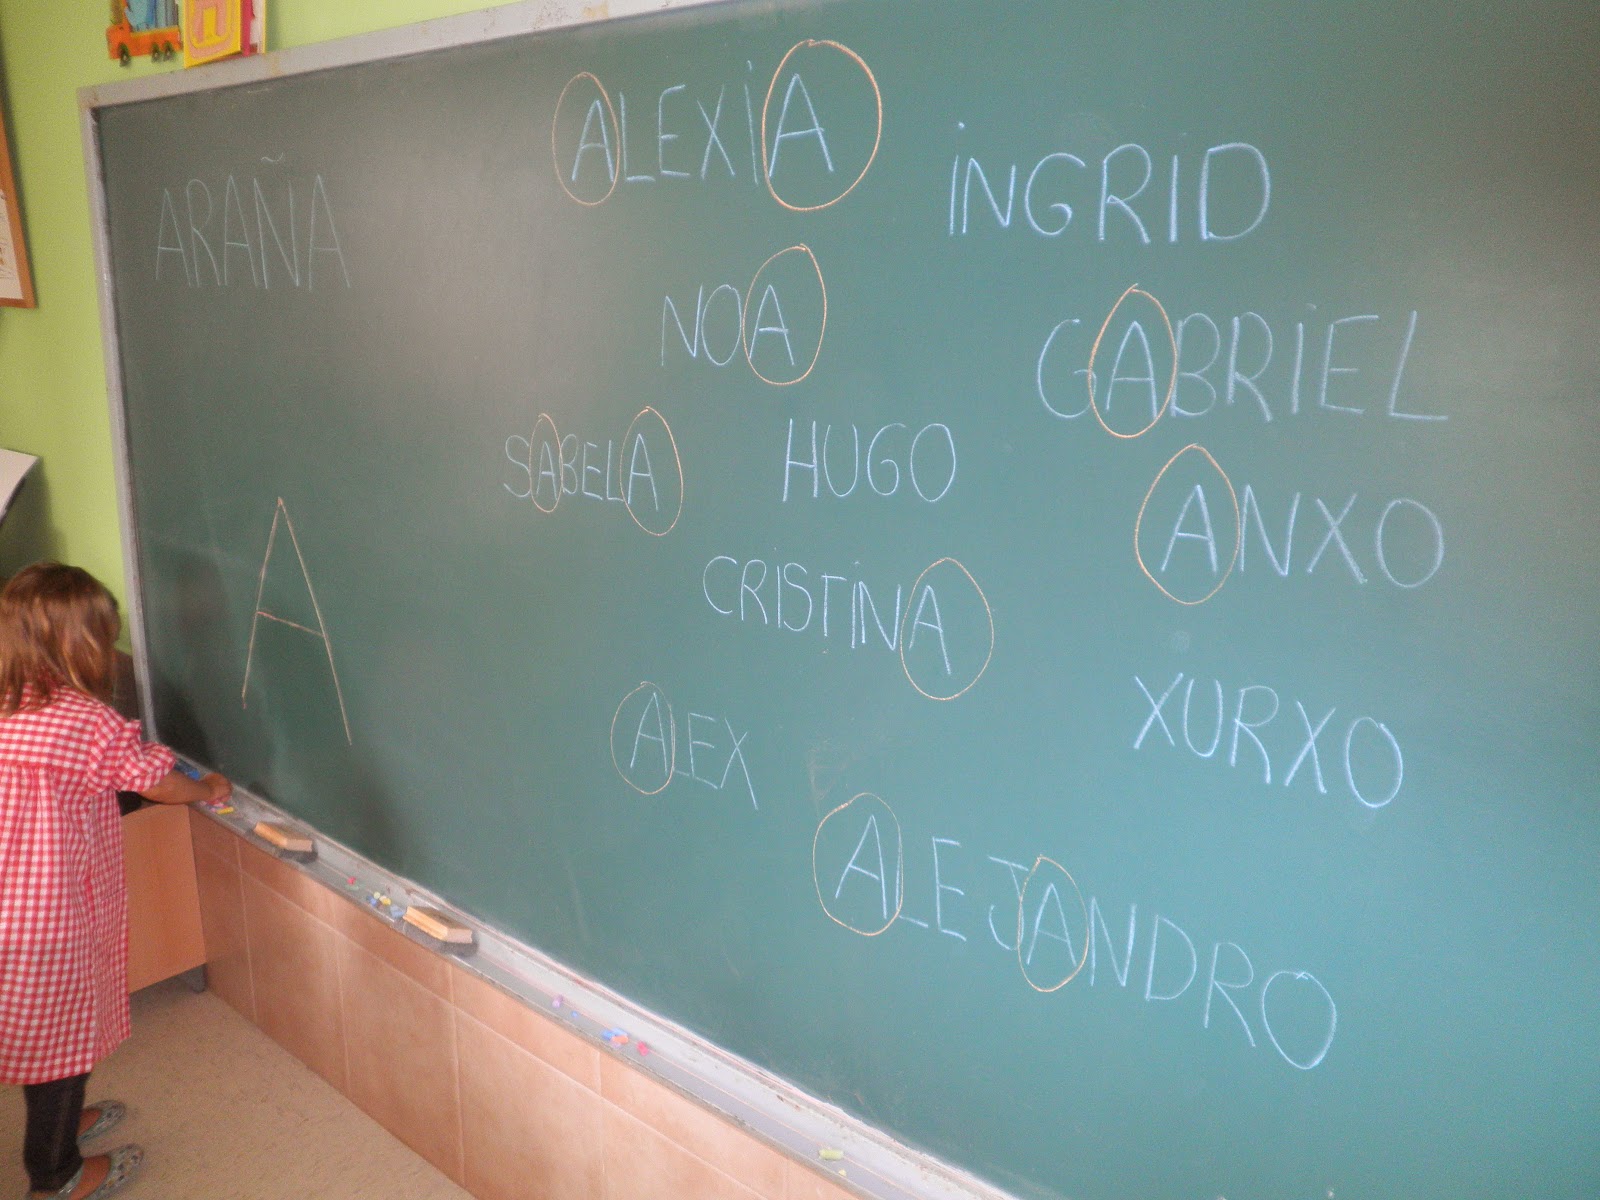 ARAÑA
A
ALEXIA
INGRID
NOA
GABRIEL
SABELA
HUGO
ANXO
CRISTINA
ALEX
XURXO
ALEJANDRO